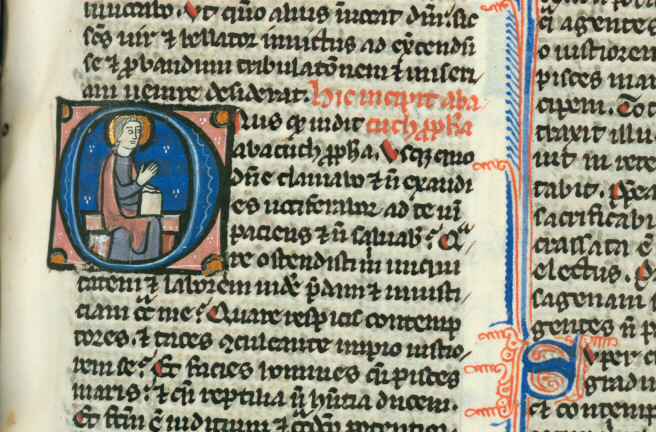 inuitato. Ut qm̄o alius iuuat dūm: sic
sc̄s uir & bellator inuictus ad exercendū
se & ꝓbandum tribulatōnem & miseri
am uenire desiderat. Hic incipit aba
cuch ꝓph̄a
Onus qd̄ uidit
abacuch ꝓph̄a. Usq; quo
dn̄e clamabo & n̄ exaudi
es uociferabor ad te uī
paciens & n̄ saluab̄? Qᵃ
re ostendisti m̄ iniqui
tatem & laborem uid̄e p̄dam & iniusti
ciam ꝯ̄ me? Quare respicis contemp
tores. & taces ꝯculcante impio iustio
rem se? Et facies homines q̄i pisces
maris: & q̄i reptilia n̄ hn̄tia ducem.
Et fc̄m ē iudicium & ꝯ̄dcō potentior
ci agentes
o iustiorem
pisces mar
cipem. Tot
traxit illu
uit in rete
tabit. Pꝑea
sacrificabi
crassata ē
electus. P
sagenam s
gentes n̄ p
Super cu
gradū
& contemp